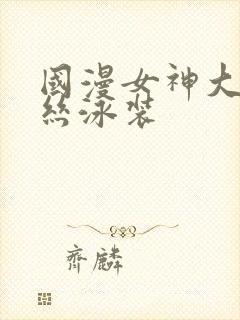 國漫女神大
絲泳裝
齊麟